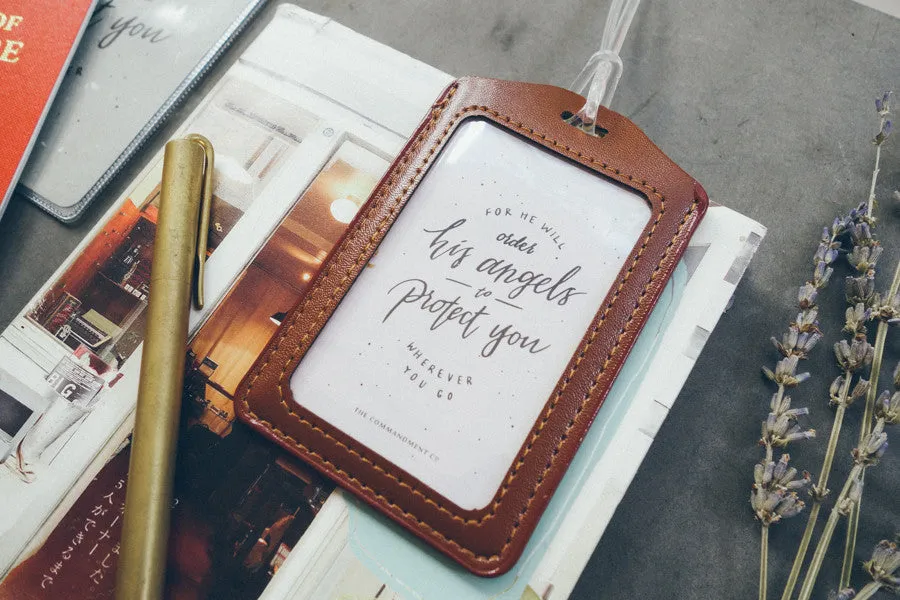 OF
RE
you
FOR HE WILL
order
his angels
to
protect you
WHEREVER
YOU GO
THE COMMANDMENT CO
人ができるまで